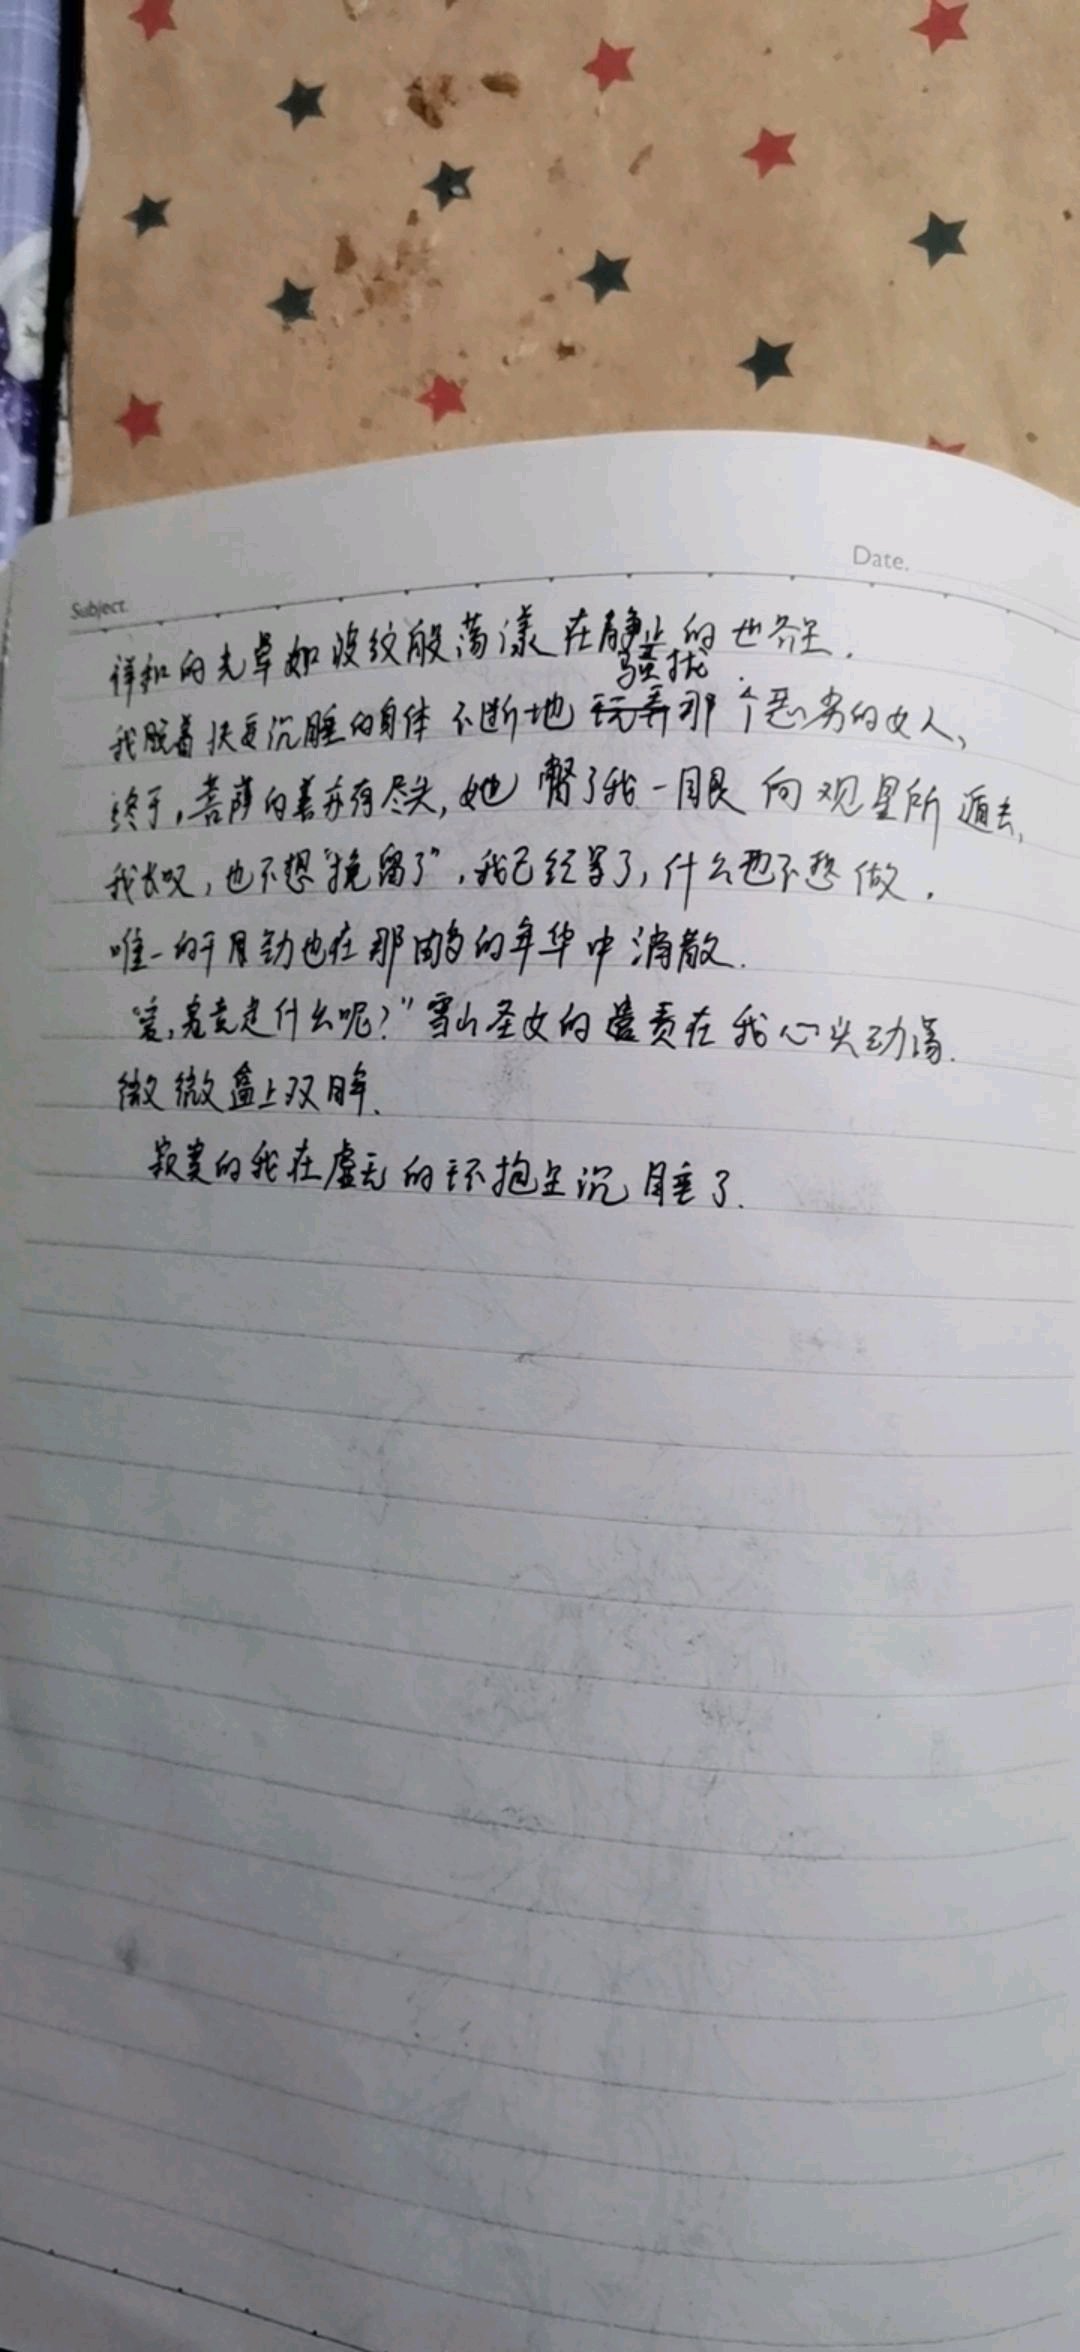 Date.
Subject.
祥和的光晕如波纹般荡漾在静止的世界里.
骚扰
我脱着快要沉睡的身体不断地玩弄那个恶劣的女人,
终于,菩萨的善亦有尽头,她瞥了我一眼向观星所遁去,
我长叹,也不想"挽留了",我已经累了,什么也不想做.
唯一的干劲也在那的年华中消散.
"爱,究竟是什么呢?"雪山圣女的谴责在我心头动荡.
微微盍上双眸.
寂寞的我在虚无的怀抱里沉睡了.